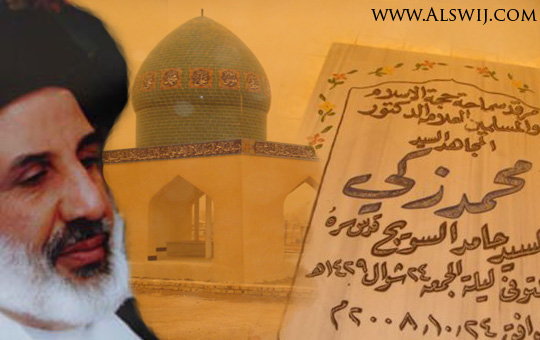 WWW.ALSWIJ.COM
مرقد سماحة حجة الإسلام
والمسلمين العلامة الدكتور
المجاهد السيد
محمد زكي
السيد حامد السويج قدس سره
المتوفى ليلة الجمعة ٢٤ شوال ١٤٢٩هـ
٢٠٠٨,١٠,٢٤ م